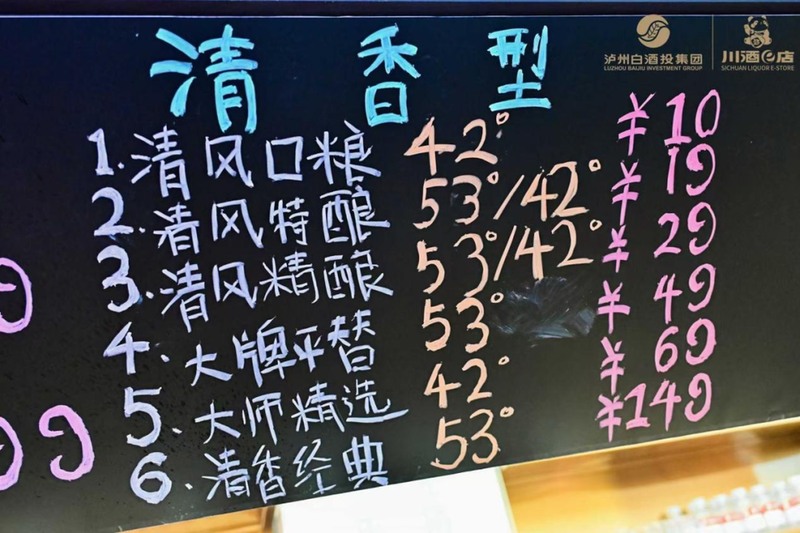 泸州白酒投集团 川酒e店
LUZHOU BAIJIU INVESTMENT GROUP SICHUAN LIQUOR E-STORE
清香型
1.清风口粮 42° ¥10
2.清风特酿 53°/42° ¥19
3.清风精酿 53°/42° ¥29
4.大牌平替 53° ¥49
5.大师精选 42° ¥69
6.清香经典 53° ¥149